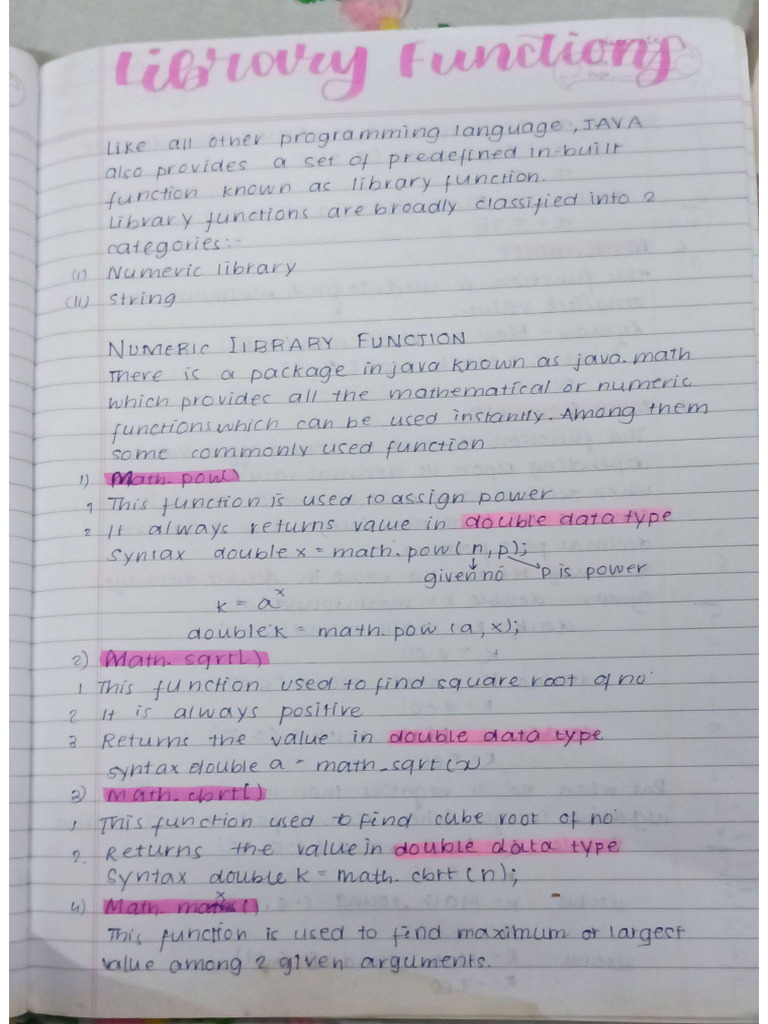 Library Functions
Like all other programming language, JAVA
also provides a set of predefined in-built
function known as library function.
Library functions are broadly classified into 2
categories:-
(i) Numeric library
(ii) String
NUMERIC LIBRARY FUNCTION
There is a package in java known as java.math
which provides all the mathematical or numeric
functions which can be used instantly. Among them
some commonly used function
1) Math.pow()
1 This function is used to assign power
2 It always returns value in double data type
Syntax double x = math.pow(n,p);
given no p is power
k = a^x
double k = math.pow (a,x);
2) Math.sqrt()
1 This function used to find square root of no.
2 It is always positive
3 Returns the value in double data type
syntax double a = math.sqrt(x
3) Math.cbrt()
1 This function used to find cube root of no.
2. Returns the value in double data type
Syntax double k = math.cbrt(n);
4) Math.max()
This function is used to find maximum or largest
value among 2 given arguments.